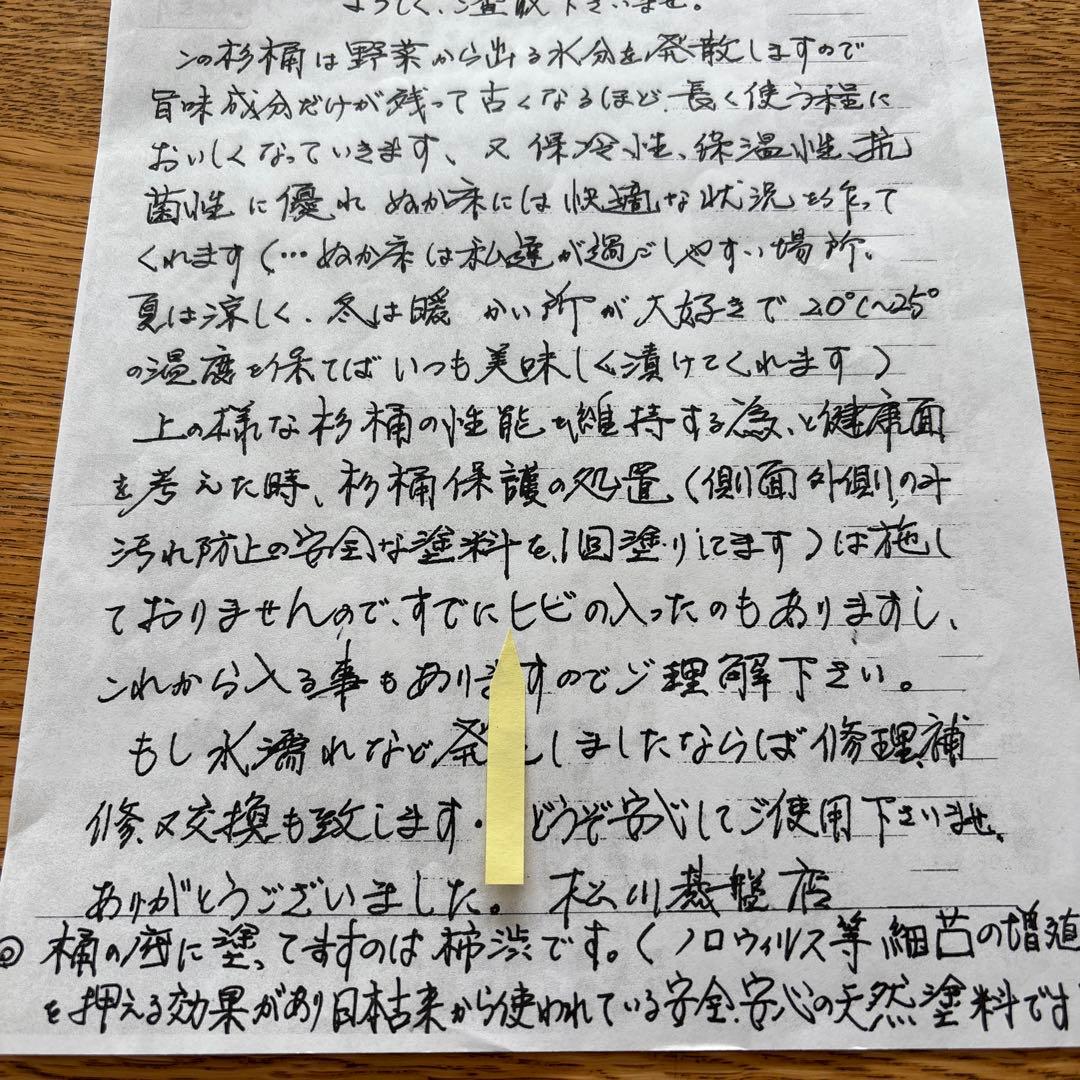 よろしくご査収下さいませ。
この杉桶は野菜から出る水分を発散しますので
旨味成分だけが残って古くなるほど、長く使う程に
おいしくなっていきます、又保冷性、保温性、抗
菌性に優れぬか床には快適な状況を作って
くれます(…ぬか床は私達が過ごしやすい場所、
夏は涼しく、冬は暖かい所が大好きで20℃〜25°
の温度を保てばいつも美味しく漬けてくれます)
上の様な杉桶の性能を維持する為、と健康面
を考えた時、杉桶保護の処置(側面外側のみ
汚れ防止の安全な塗料を、1回塗りしてます)は施し
ておりませんので、すでにヒビの入ったのもありますし、
これから入る事もありますのでご理解下さい。
もし水濡れなど発 しましたならば修理、補
修、又交換も致します・どうぞ安心してご使用下さいませ、
ありがとうございました。 松川碁盤店
◎桶の底に塗ってますのは柿渋です。(ノロウィルス等細菌の増殖
を押える効果があり日本古来から使われている安全、安心の天然塗料です